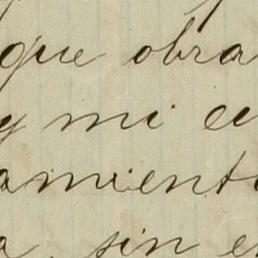 que obra
y mi
amient
sin